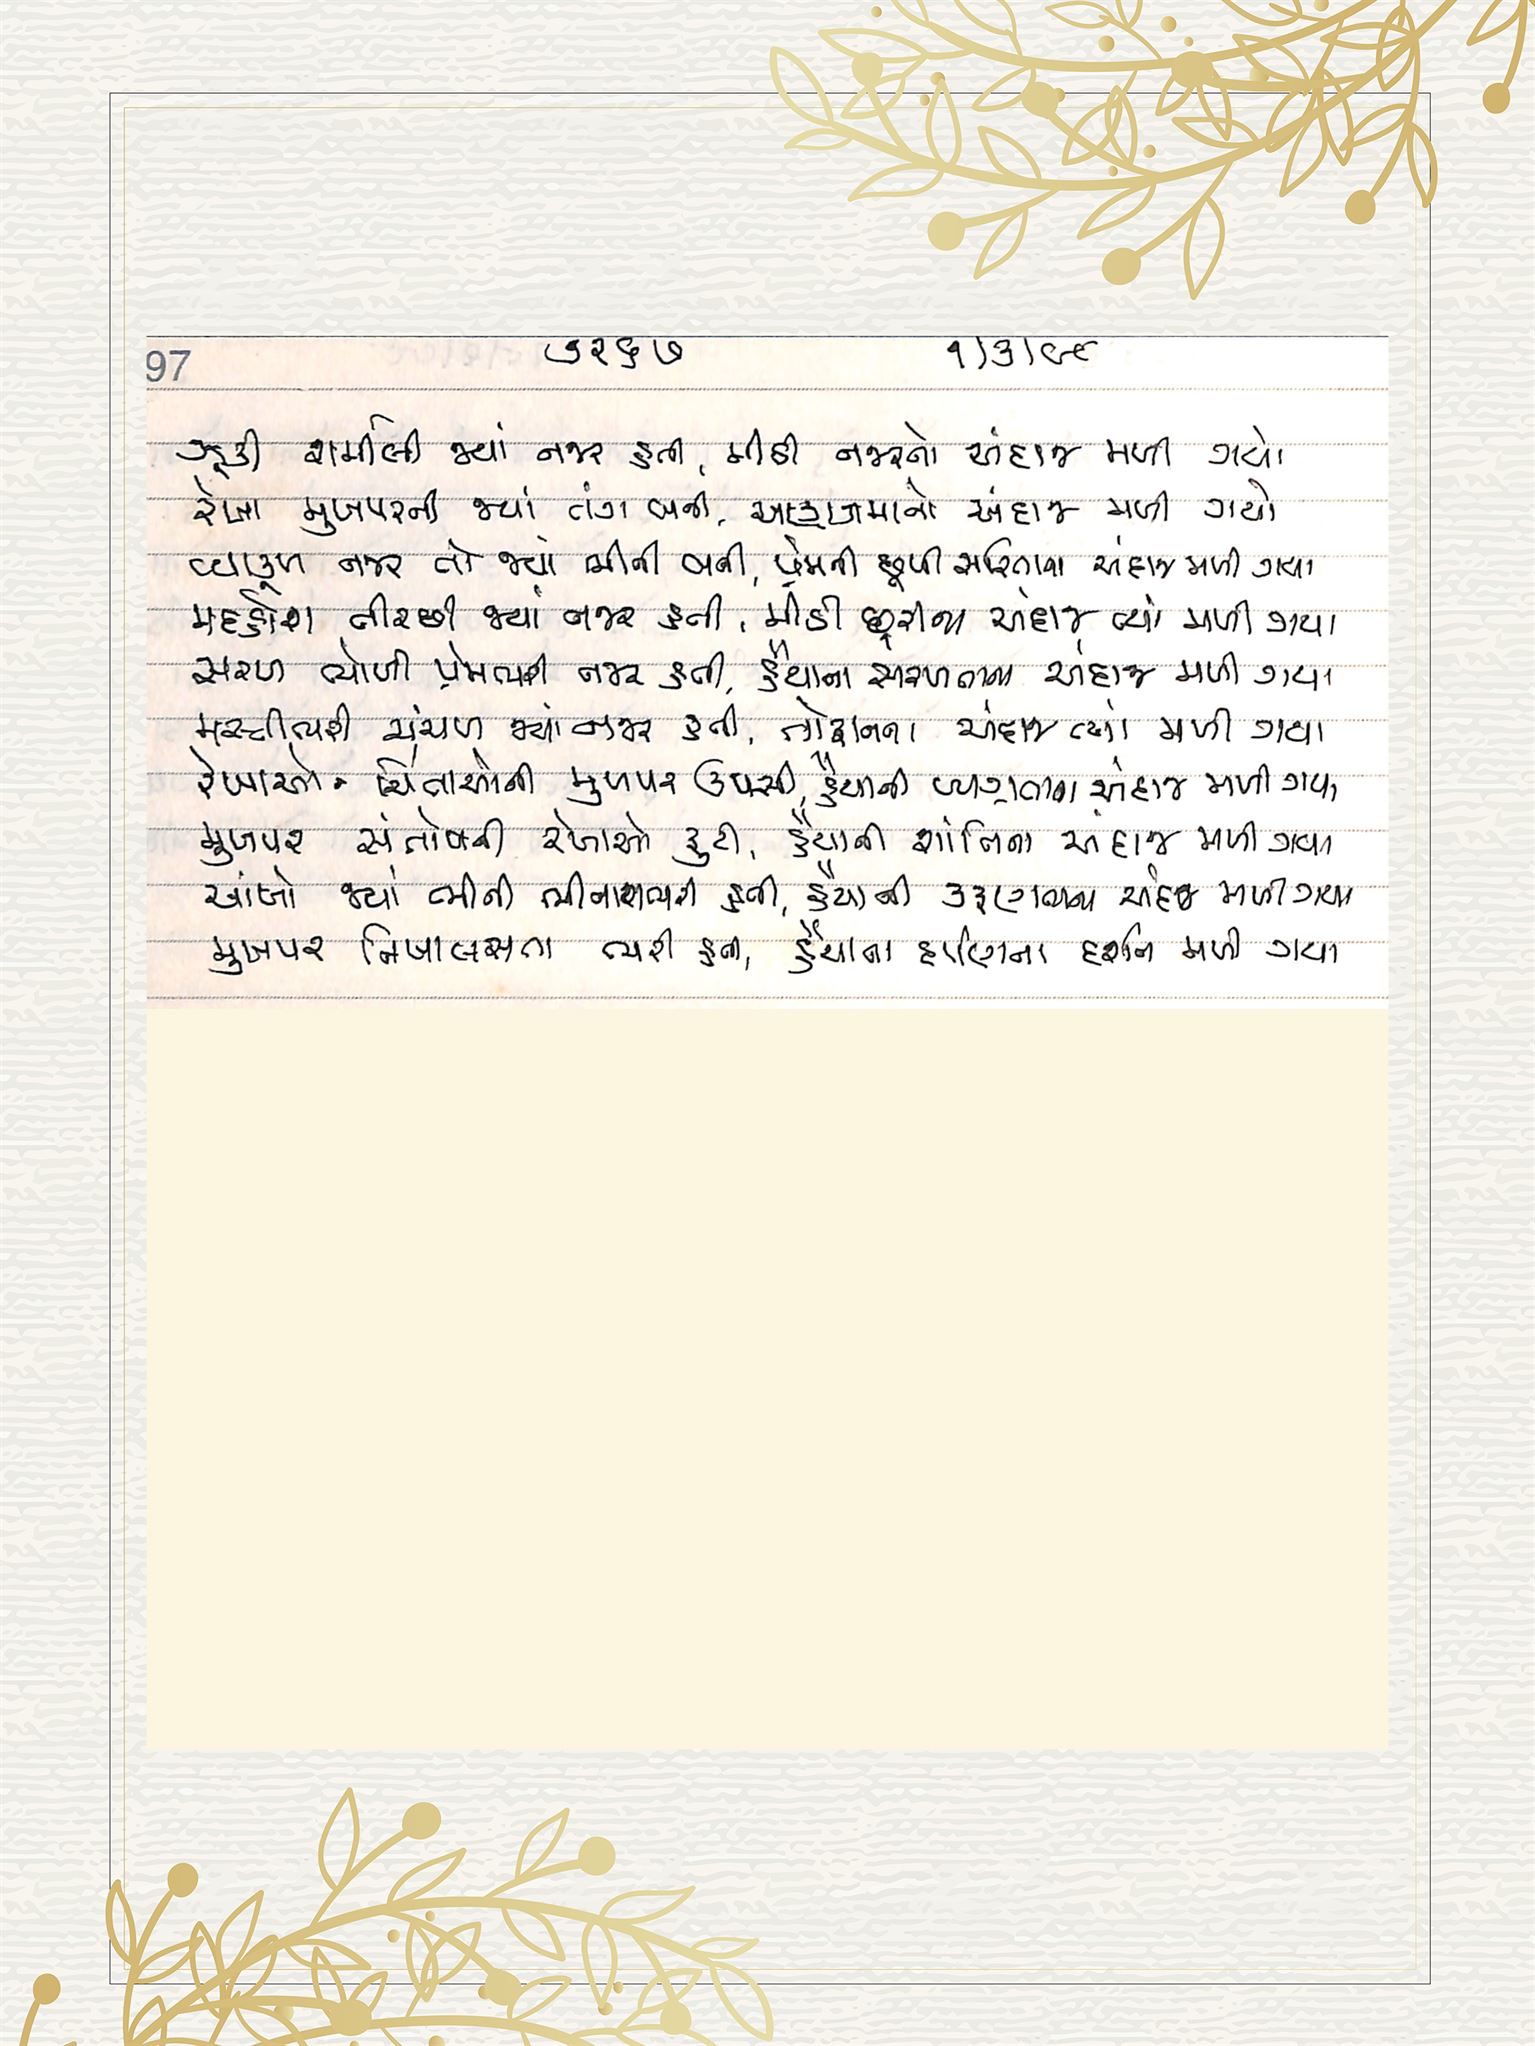 97 ७२६७ ૧/૩/૯૯
ઝૂકી શર્મીલી જ્યાં નજર હતી, મીઠી નજરનો અંદાજ મળી ગયો
રેખા મુખપરની જ્યાં તંગ બની, અણગમાનો અંદાજ મળી ગયો
વ્યાકૂળ નજર તો જ્યાં ભીની બની, પ્રેમની છૂપી સરિતાના અંદાજ મળી ગયા
મદહોશ તીરછી જ્યાં નજર હતી, મીઠી છૂરીના અંદાજ ત્યાં મળી ગયા
સરળ ભોળી પ્રેમભરી નજર હતી, હૈયાના સરળતાના અંદાજ મળી ગયા
મસ્તીભરી ચંચળ જ્યાં નજર હતી, તોફાનના અંદાજ ત્યાં મળી ગયા
રેખાઓ ચિંતાઓની મુખપર ઉપસી, હૈયાની વ્યગ્રતાના અંદાજ મળી ગયા
મુખપર સંતોષની રેખાઓ ફુટી, હૈયાની શાંતિના અંદાજ મળી ગયા
આંખો જ્યાં ભીની ભીનાશભરી હતી, હૈયાની કરૂણતાના અંદાજ મળી ગયા
મુખપર નિખાલસતા ભરી હતી, હૈયાના દર્પણના દર્શન મળી ગયા